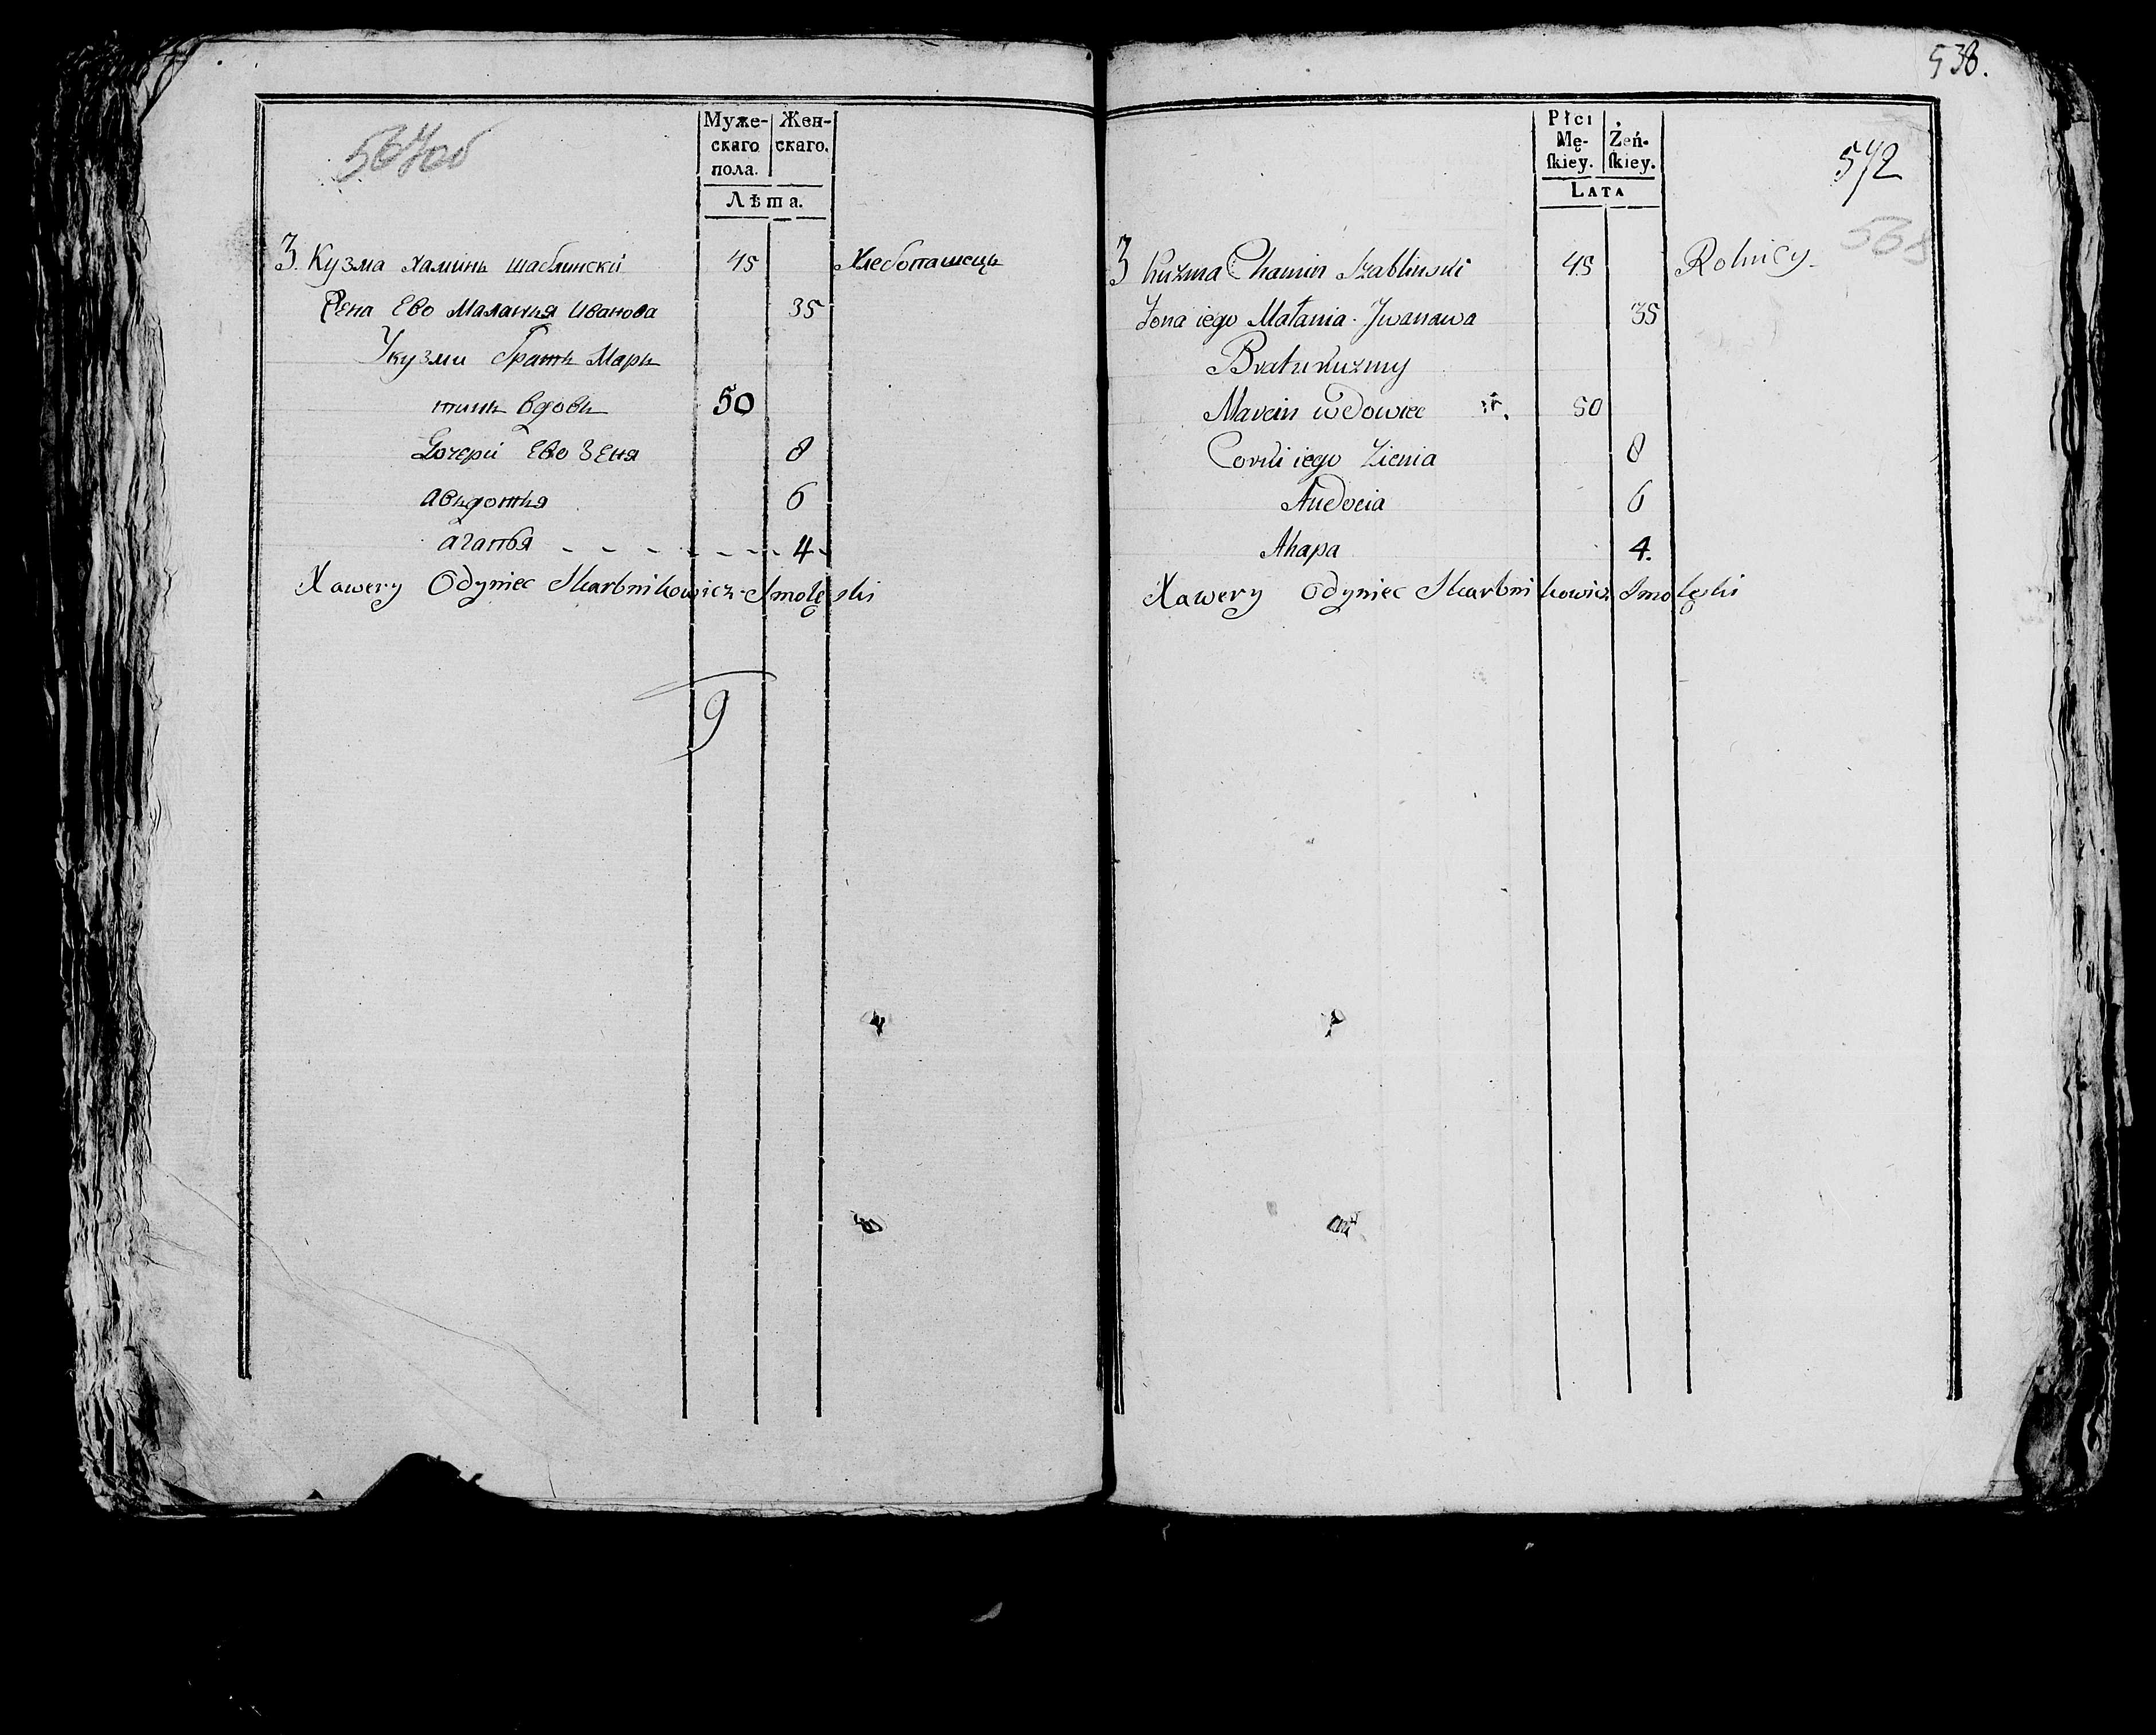 567об
Муже-
скаго
пола.
Жен-
скаго.
Лѣта.
3. Кузма Хаминъ Шаблинскі 45 Хлебопашець
Жена Ево Маланья Иванова 35
У кузми братъ Мар
тинъ вдовъ 50
Дочери Ево Зеня 8
авъдотъя 6
агапья 4
Xawery Odyniec Skarbnikowicz Smoleński
9
538.
Płci
Mę-
ſkiey.
Żeń-
ſkiey.
LATA
572
568
3 Kuzma Chamin Szablinski 45 Rolnicy
Żona iego Małania Jwanawa 35
Brat u Kuzmy
Marcin wdowiec 50
Corki iego Zienia 8
Audocia 6
Ahapa 4.
Xawery Odyniec Skarbnikowicz Smoleński